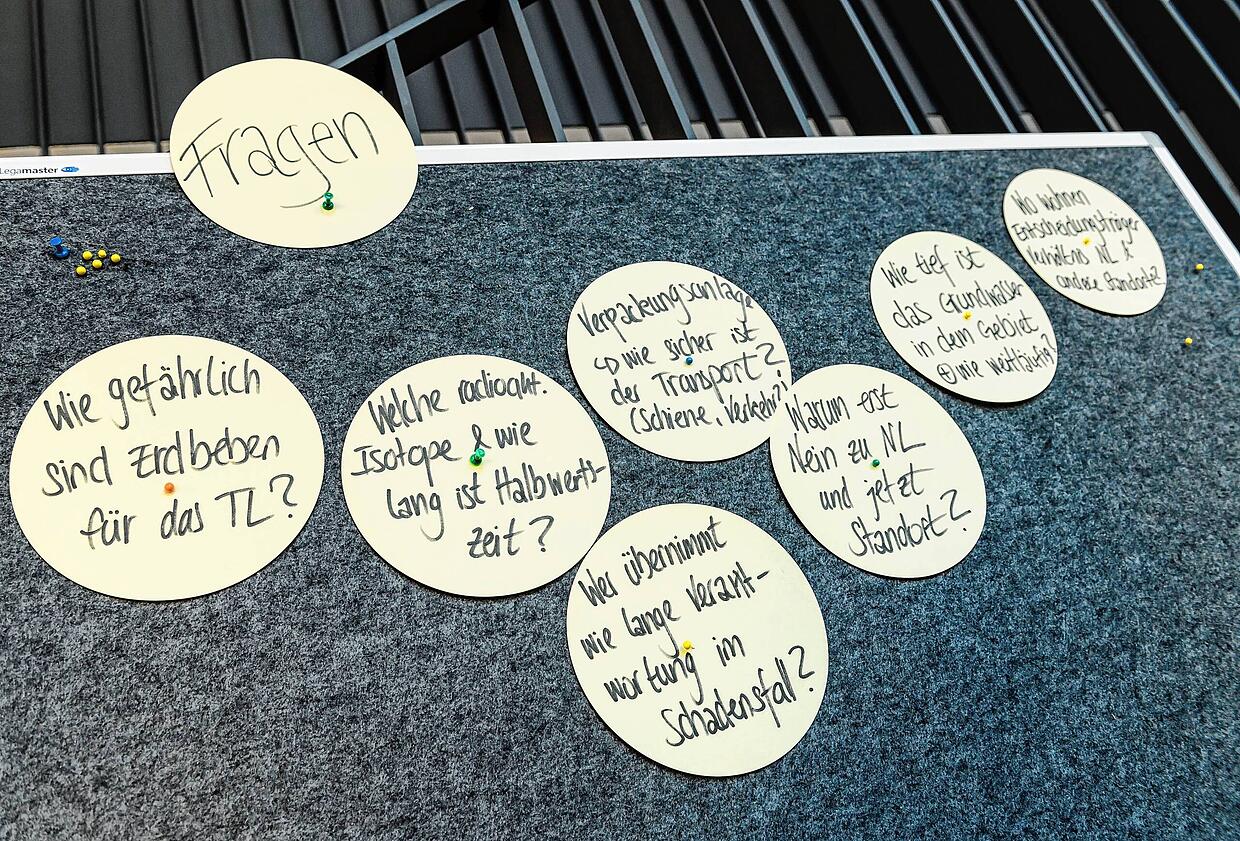 Legamaster
Fragen
Wie gefährlich
sind Erdbeben
für das TL?
Welche radioakt.
Isotope & wie
lang ist Halbwerts-
zeit?
Verpackungsanlage
wie sicher ist
der Transport?
(Schiene, Verkehr?)
Wer übernimmt
wie lange Verant-
wortung im
Schadensfall?
Warum erst
Nein zu NL
und jetzt
Standort?
Wie tief ist
das Grundwasser
in dem Gebiet
⊕ wie weitläufig?
Wo wohnen
Entscheidungsträger
Verhältnis NL &
andere Standort?